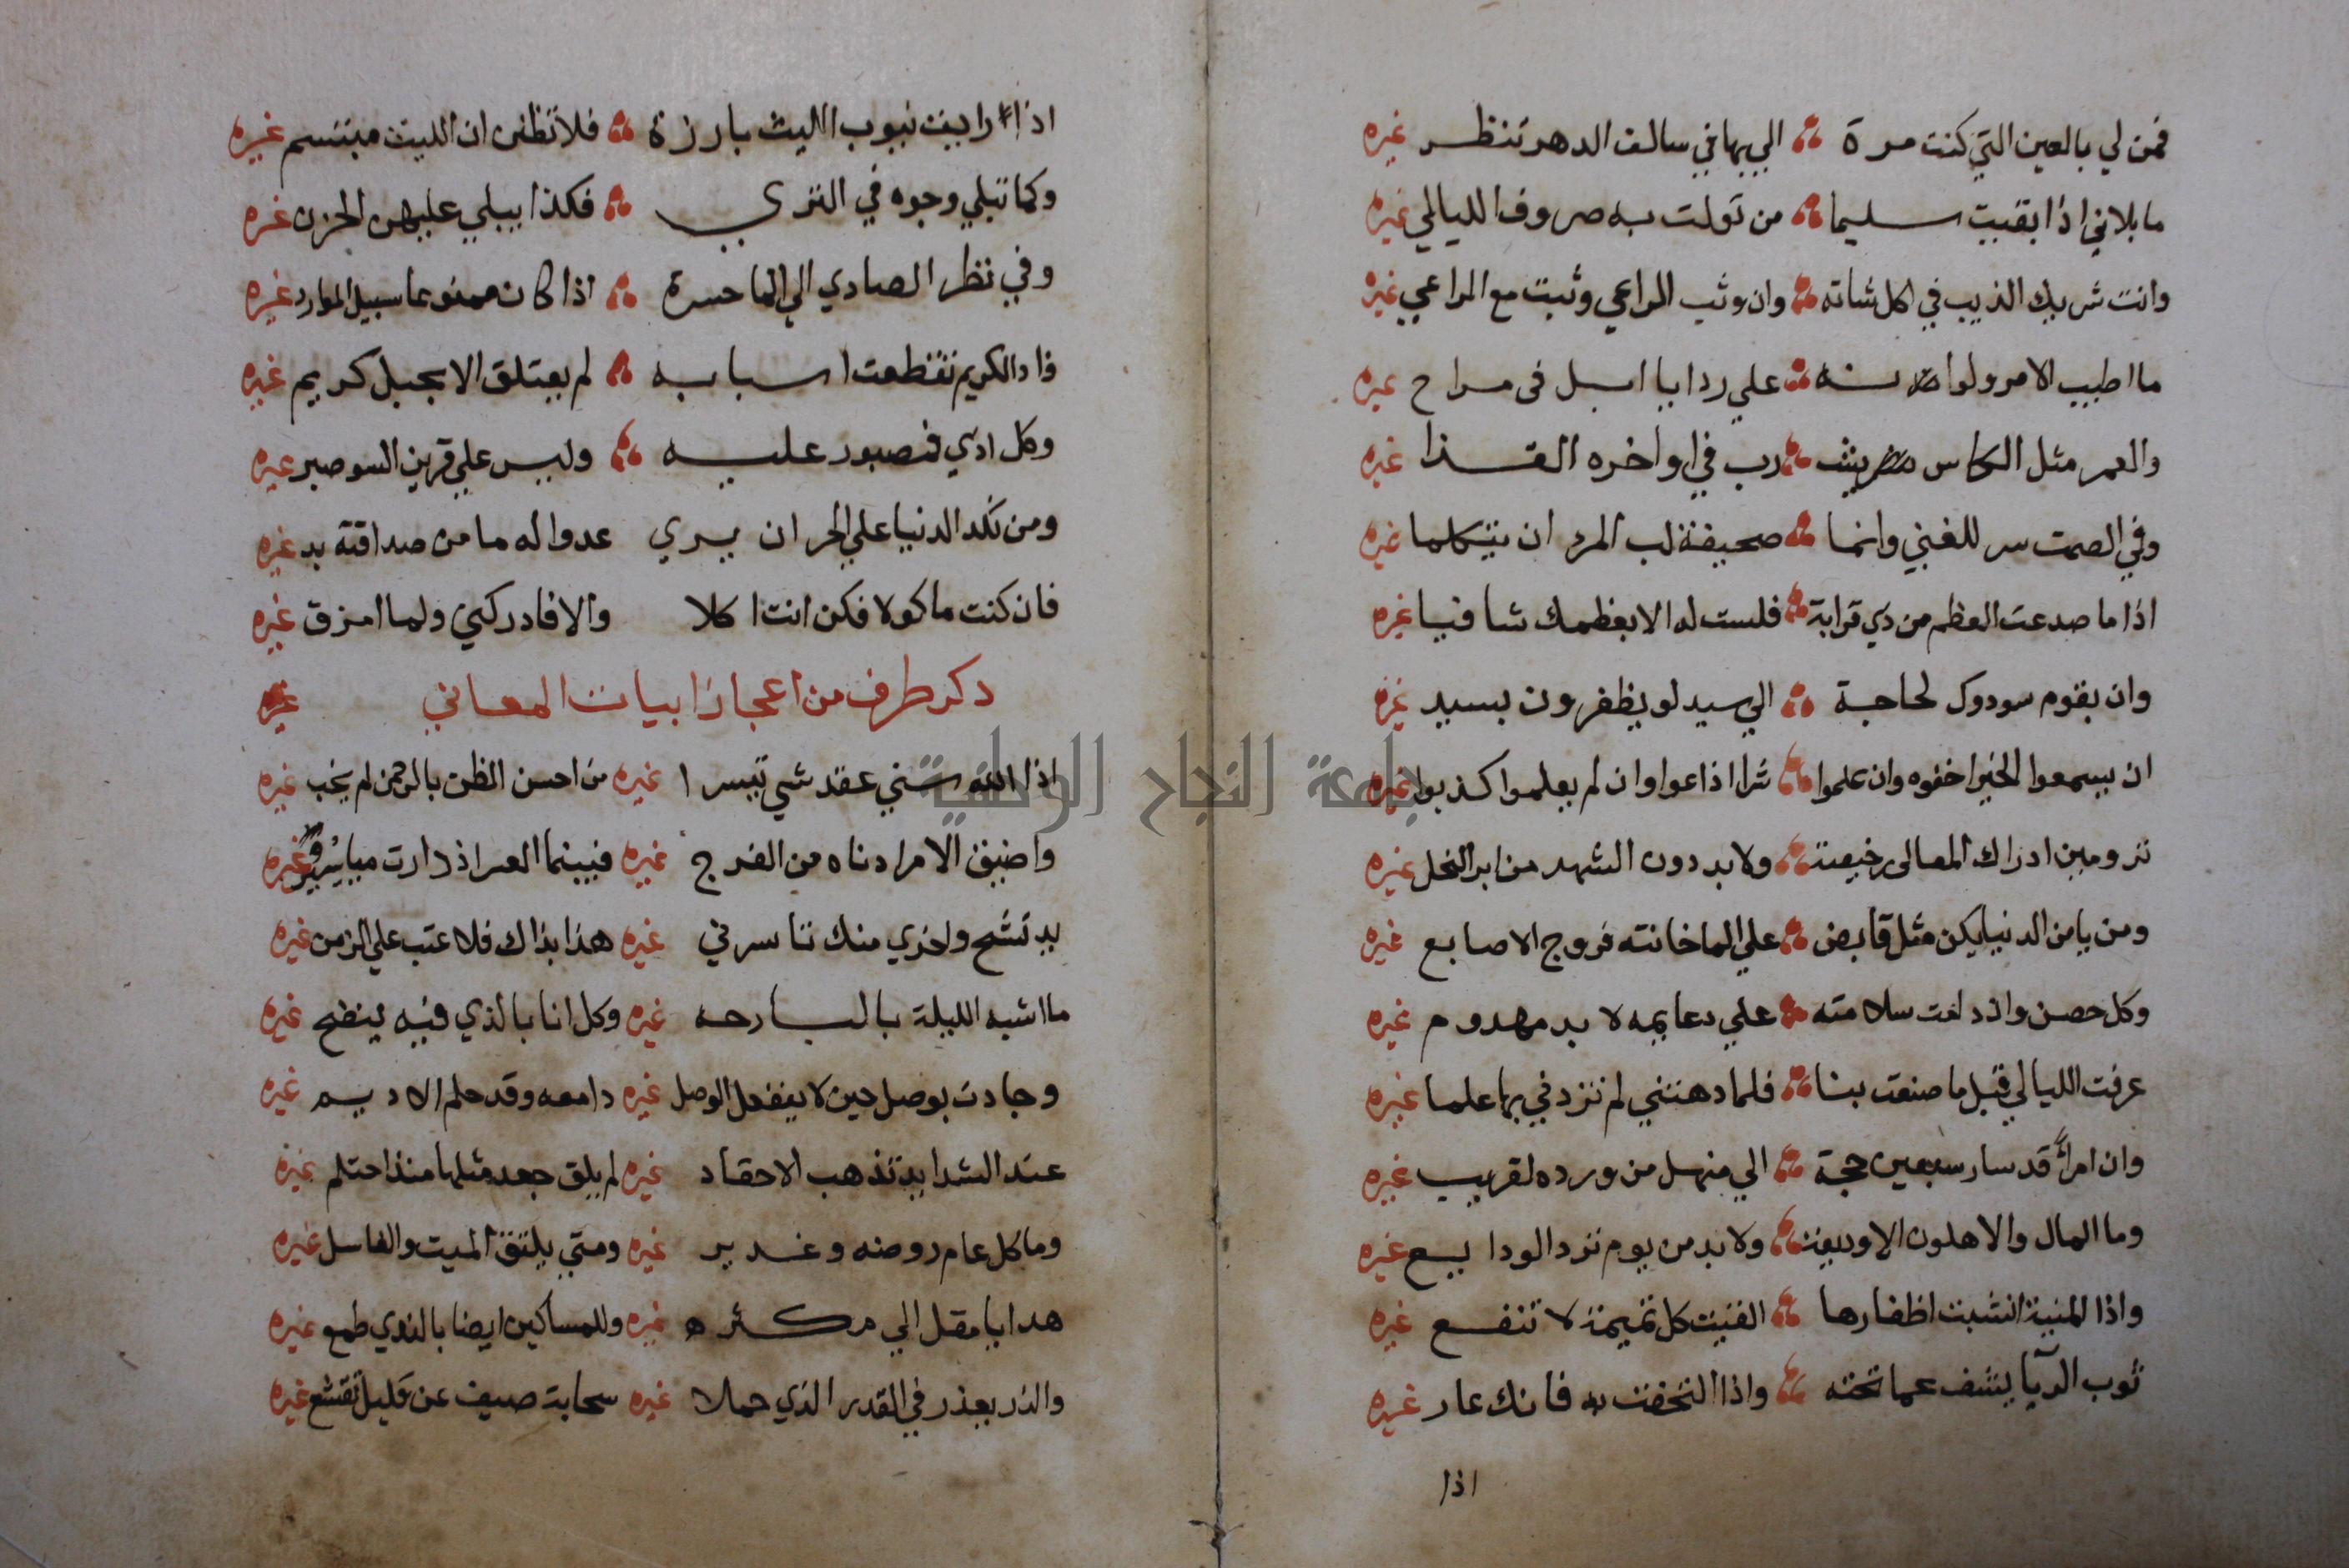 فمن لي بالعين التي كنت مرة الي بها في سالف الدهر تنظر غيره
ما بلاني اذا بقيت سليما من تولت به صروف الليالي غيره
وانت شريك الذيب في اكل شاته وان وثب الراعي وثبت مع الراعي غيره
ما اطيب الامر ولو انه علي ردايا ابل في مراح غيره
والعمر مثل الكاس رب في اواخره القذا غيره
وفي الصمت ستر للغني وانما صحيفة لب المرء ان يتكلما غيره
اذا ما صدعت العظم من ذي قرابة فلست له الا بعظمك شافيا غيره
وان بقوم سودوك لحاجة الي سيد لو يظفرون بسيد غيره
ان يسمعوا الخير اخفوه وان علموا شرا اذاعوا وان لم يعلموا كذبوا غيره
ترومين ادراك المعالي رخيصة ولا بد دون الشهد من ابر النحل غيره
ومن يامن الدنيا يكن مثل قابض علي الما خانته فروج الاصابع غيره
وكل حصن وان دامت سلامته علي دعايمه لا بد مهدوم غيره
عرفت الليالي قبل ما صنعت بنا فلما دهتني لم تزدني بها علما غيره
وان امرأ قد سار سبعين حجة الي منهل من ورده لقريب غيره
وما المال والاهلون الا وديعة ولا بد من يوم ترد الودايع غيره
واذا المنية انشبت اظفارها الفيت كل تميمة لا تنفع غيره
ثوب الريا يشف عما تحته واذا التحفت به فانك عار غيره
اذا
اذا رايت نيوب الليث بارزة فلا تظن ان الليث مبتسم غيره
وكما تبلي وجوه في الثري فكذا يبلي عليهن الحزن غيره
وفي نظر الصادي الي الما حسرة اذا كان ممنوعا سبيل الموارد غيره
واد الكريم تقطعت اسبابه لم يعتلق الا بحبل كريم غيره
وكل اذي فصبور عليه وليس علي قرين السو صبر غيره
ومن نكد الدنيا علي الحر ان يري عدوا له ما من صداقته بد غيره
فان كنت ماكولا فكن انت اكلا والا فادركني ولما امزق غيره
ذكر طرف من اعجاز ابيات المعاني غيره
اذا الله سني عقد شي تيسرا غيره من احسن الظن بالرحمن لم يخب غيره
واضيق الامر ادناه من الفرج غيره فبينما العسر اذ دارت مياسير غيره
يد تشح واخري منك تاسرني غيره هذا بذاك فلا عتب علي الزمن غيره
ما اشبه الليلة بالبارحه غيره وكل انا بالذي فيه ينضح غيره
وجادت بوصل حين لا ينفع الوصل غيره دامعه وقد حلم الاديم غيره
عند الشدايد تذهب الاحقاد غيره لم يلق جعد مثلها منذ احتلم غيره
وما كل عام روضه وغدير غيره ومتي يلتق الميت والغاسل غيره
هدايا مقل الي مكثره غيره وللمساكين ايضا بالندي طمع غيره
والذر يعذر في القدر الذي حملا غيره سحابة صيف عن قليل تقشع غيره
جامعة النجاح الوطنية